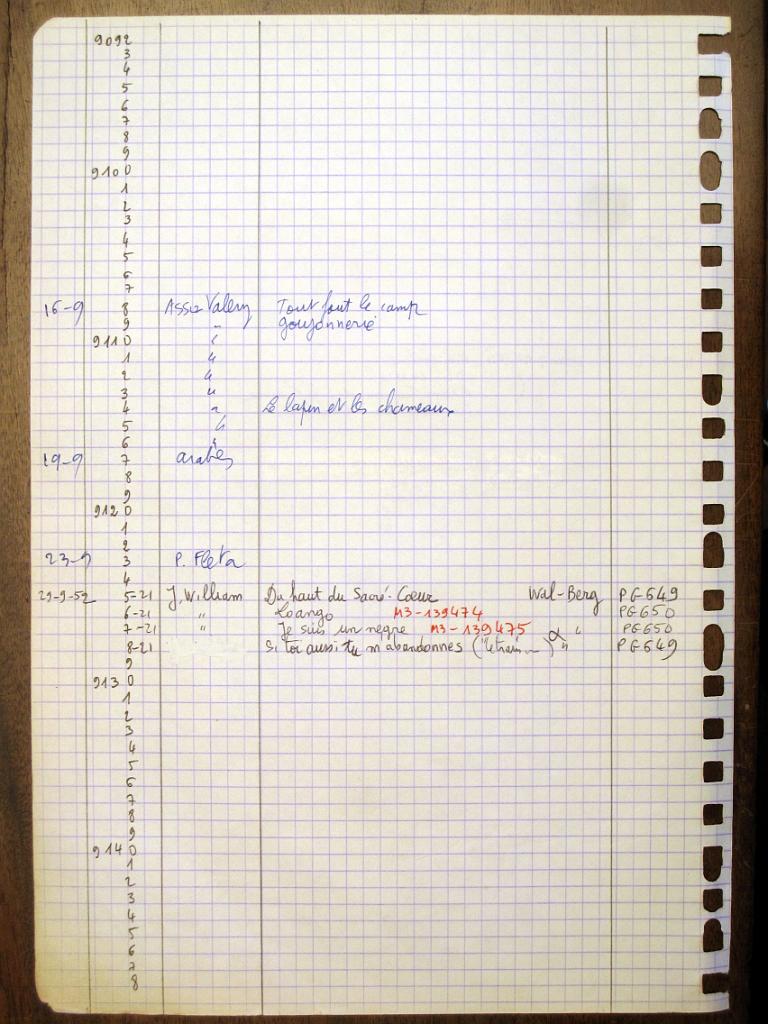 9092
3
4
5
6
7
8
9
9100
1
2
3
4
5
6
7
16-9 8 Asso Valery Tout fout le camp
9 " goujonnerie
9110 "
1 "
2 "
3 "
4 " Le lapin et les chameaux
5 "
6 "
19-9 7 arabes
8
9
9120
1
2
23-9 3 P. Fleta
4
29-9-52 5-21 J. William Du haut du Sacré-Coeur Wal-Berg PG649
6-21 " Loango M3-139474 PG650
7-21 " Je suis un nègre M3-139475 " PG650
8-21 Si toi aussi tu m'abandonnes ("le train) " PG649
9
9130
1
2
3
4
5
6
7
8
9
9140
1
2
3
4
5
6
7
8